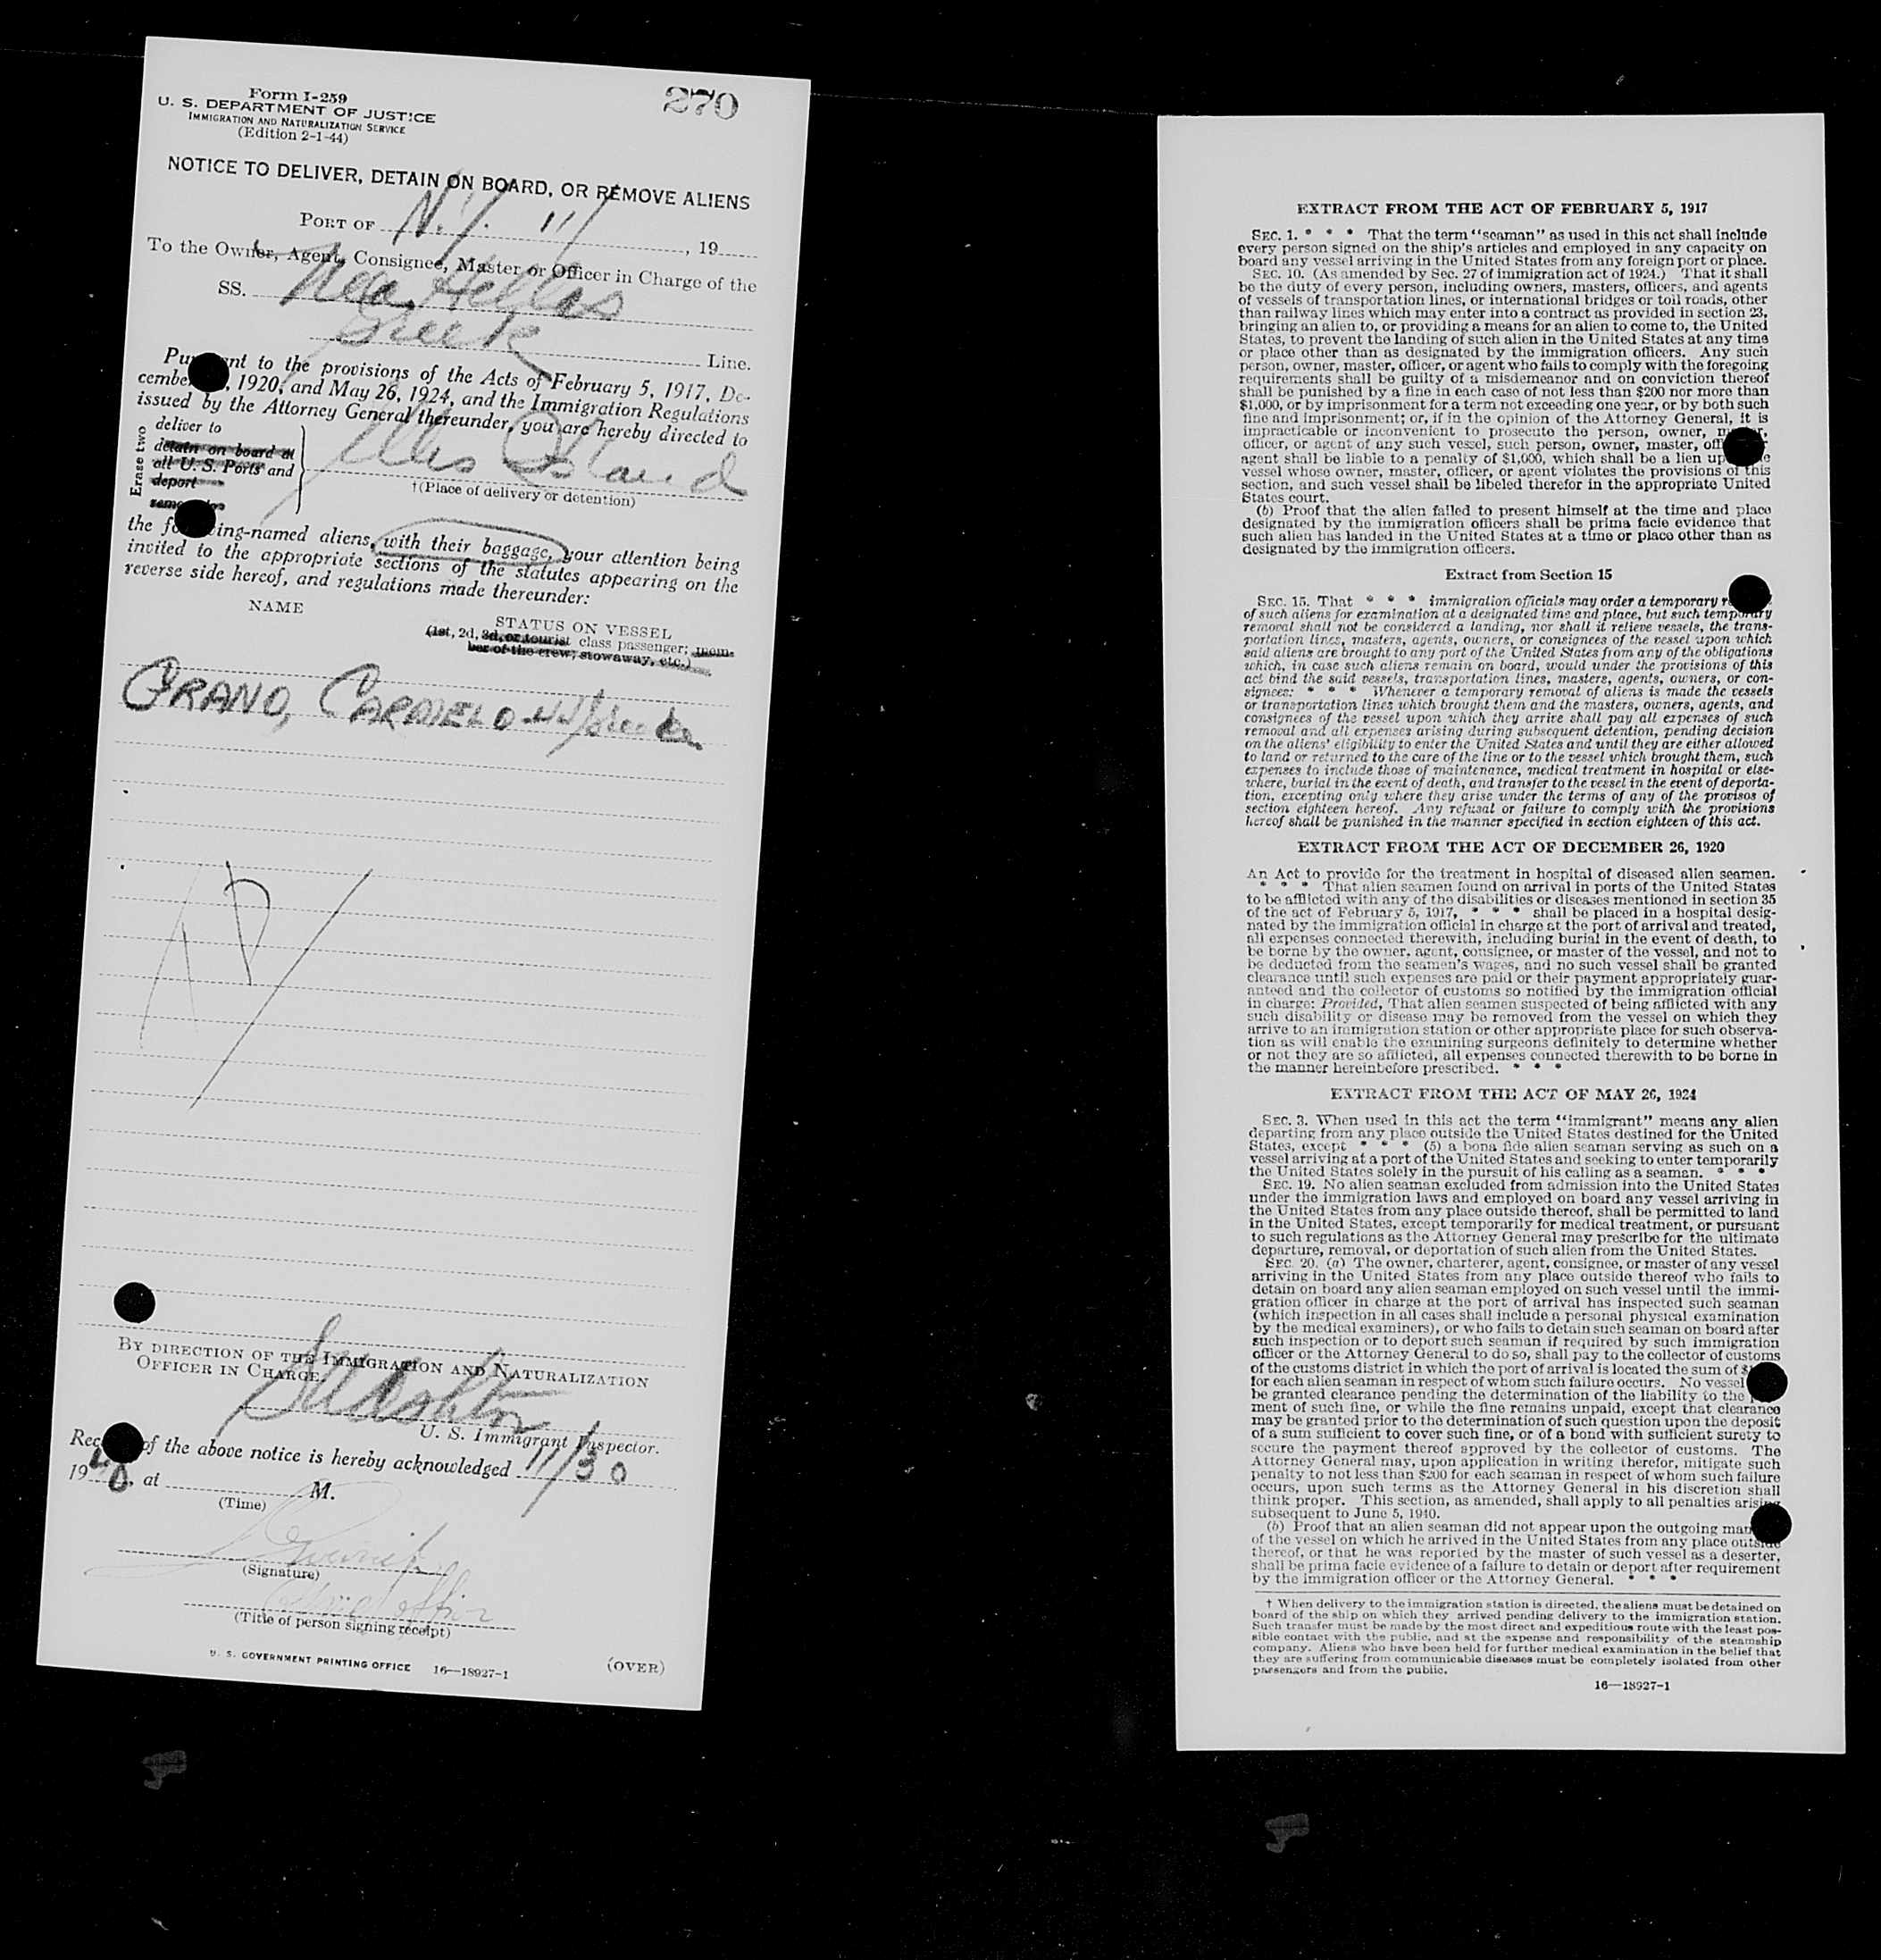 Form I-259
270
U. S. DEPARTMENT OF JUSTICE
IMMIGRATION AND NATURALIZATION SERVICE
(Edition 2-1-44)
NOTICE TO DELIVER, DETAIN ON BOARD, OR REMOVE ALIENS
PORT OF N.Y. 11/ , 19
To the Owner, Agent, Consignee, Master or Officer in Charge of the
SS. Nea Hellas
Greek Line.
Pursuant to the provisions of the Acts of February 5, 1917, De-
cember , 1920, and May 26, 1924, and the Immigration Regulations
issued by the Attorney General thereunder, you are hereby directed to
Erase two
deliver to
detain on board at
all U.S. Ports and
deport
remove to
Ellis Island
†(Place of delivery or detention)
the following-named aliens, with their baggage, your attention being
invited to the appropriate sections of the statutes appearing on the
reverse side hereof, and regulations made thereunder:
NAME
STATUS ON VESSEL
(1st, 2d, 3d, or tourist class passenger; mem-
ber of the crew; stowaway, etc.)
GRANO, CARMELO
BY DIRECTION OF THE IMMIGRATION AND NATURALIZATION
OFFICER IN CHARGE.
U. S. Immigrant Inspector.
Receipt of the above notice is hereby acknowledged 11/30
19 , at M.
(Time)
(Signature)
(Title of person signing receipt)
U. S. GOVERNMENT PRINTING OFFICE 16—18927-1
(OVER)
EXTRACT FROM THE ACT OF FEBRUARY 5, 1917
SEC. 1. * * * That the term "seaman" as used in this act shall include
every person signed on the ship's articles and employed in any capacity on
board any vessel arriving in the United States from any foreign port or place.
SEC. 10. (As amended by Sec. 27 of immigration act of 1924.) That it shall
be the duty of every person, including owners, masters, officers, and agents
of vessels of transportation lines, or international bridges or toil roads, other
than railway lines which may enter into a contract as provided in section 23,
bringing an alien to, or providing a means for an alien to come to, the United
States, to prevent the landing of such alien in the United States at any time
or place other than as designated by the immigration officers. Any such
person, owner, master, officer, or agent who fails to comply with the foregoing
requirements shall be guilty of a misdemeanor and on conviction thereof
shall be punished by a fine in each case of not less than $200 nor more than
$1,000, or by imprisonment for a term not exceeding one year, or by both such
fine and imprisonment; or, if in the opinion of the Attorney General, it is
impracticable or inconvenient to prosecute the person, owner, master,
officer, or agent of any such vessel, such person, owner, master, officer, or
agent shall be liable to a penalty of $1,000, which shall be a lien upon the
vessel whose owner, master, officer, or agent violates the provisions of this
section, and such vessel shall be libeled therefor in the appropriate United
States court.
(b) Proof that the alien failed to present himself at the time and place
designated by the immigration officers shall be prima facie evidence that
such alien has landed in the United States at a time or place other than as
designated by the immigration officers.
Extract from Section 15
SEC. 15. That * * * immigration officials may order a temporary removal
of such aliens for examination at a designated time and place, but such temporary
removal shall not be considered a landing, nor shall it relieve vessels, the trans-
portation lines, masters, agents, owners, or consignees of the vessel upon which
said aliens are brought to any port of the United States from any of the obligations
which, in case such aliens remain on board, would under the provisions of this
act bind the said vessels, transportation lines, masters, agents, owners, or con-
signees: * * * Whenever a temporary removal of aliens is made the vessels
or transportation lines which brought them and the masters, owners, agents, and
consignees of the vessel upon which they arrive shall pay all expenses of such
removal and all expenses arising during subsequent detention, pending decision
on the aliens' eligibility to enter the United States and until they are either allowed
to land or returned to the care of the line or to the vessel which brought them, such
expenses to include those of maintenance, medical treatment in hospital or else-
where, burial in the event of death, and transfer to the vessel in the event of deporta-
tion, excepting only where they arise under the terms of any of the provisos of
section eighteen hereof. Any refusal or failure to comply with the provisions
hereof shall be punished in the manner specified in section eighteen of this act.
EXTRACT FROM THE ACT OF DECEMBER 26, 1920
An Act to provide for the treatment in hospital of diseased alien seamen.
* * * That alien seamen found on arrival in ports of the United States
to be afflicted with any of the disabilities or diseases mentioned in section 35
of the act of February 5, 1917, * * * shall be placed in a hospital desig-
nated by the immigration official in charge at the port of arrival and treated,
all expenses connected therewith, including burial in the event of death, to
be borne by the owner, agent, consignee, or master of the vessel, and not to
be deducted from the seamen's wages, and no such vessel shall be granted
clearance until such expenses are paid or their payment appropriately guar-
anteed and the collector of customs so notified by the immigration official
in charge: Provided, That alien seamen suspected of being afflicted with any
such disability or disease may be removed from the vessel on which they
arrive to an immigration station or other appropriate place for such observa-
tion as will enable the examining surgeons definitely to determine whether
or not they are so afflicted, all expenses connected therewith to be borne in
the manner hereinbefore prescribed. * * *
EXTRACT FROM THE ACT OF MAY 26, 1924
SEC. 3. When used in this act the term "immigrant" means any alien
departing from any place outside the United States destined for the United
States, except * * * (5) a bona fide alien seaman serving as such on a
vessel arriving at a port of the United States and seeking to enter temporarily
the United States solely in the pursuit of his calling as a seaman. * * *
SEC. 19. No alien seaman excluded from admission into the United States
under the immigration laws and employed on board any vessel arriving in
the United States from any place outside thereof, shall be permitted to land
in the United States, except temporarily for medical treatment, or pursuant
to such regulations as the Attorney General may prescribe for the ultimate
departure, removal, or deportation of such alien from the United States.
SEC. 20. (a) The owner, charterer, agent, consignee, or master of any vessel
arriving in the United States from any place outside thereof who fails to
detain on board any alien seaman employed on such vessel until the immi-
gration officer in charge at the port of arrival has inspected such seaman
(which inspection in all cases shall include a personal physical examination
by the medical examiners), or who fails to detain such seaman on board after
such inspection or to deport such seaman if required by such immigration
officer or the Attorney General to do so, shall pay to the collector of customs
of the customs district in which the port of arrival is located the sum of
for each alien seaman in respect of whom such failure occurs. No vessel
be granted clearance pending the determination of the liability to the pay-
ment of such fine, or while the fine remains unpaid, except that clearance
may be granted prior to the determination of such question upon the deposit
of a sum sufficient to cover such fine, or of a bond with sufficient surety to
secure the payment thereof approved by the collector of customs. The
Attorney General may, upon application in writing therefor, mitigate such
penalty to not less than $200 for each seaman in respect of whom such failure
occurs, upon such terms as the Attorney General in his discretion shall
think proper. This section, as amended, shall apply to all penalties arising
subsequent to June 5, 1940.
(b) Proof that an alien seaman did not appear upon the outgoing manifest
of the vessel on which he arrived in the United States from any place outside
thereof, or that he was reported by the master of such vessel as a deserter,
shall be prima facie evidence of a failure to detain or deport after requirement
by the immigration officer or the Attorney General. * * *
† When delivery to the immigration station is directed, the aliens must be detained on
board of the ship on which they arrived pending delivery to the immigration station.
Such transfer must be made by the most direct and expeditious route with the least pos-
sible contact with the public, and at the expense and responsibility of the steamship
company. Aliens who have been held for further medical examination in the belief that
they are suffering from communicable diseases must be completely isolated from other
passengers and from the public.
16—18927-1